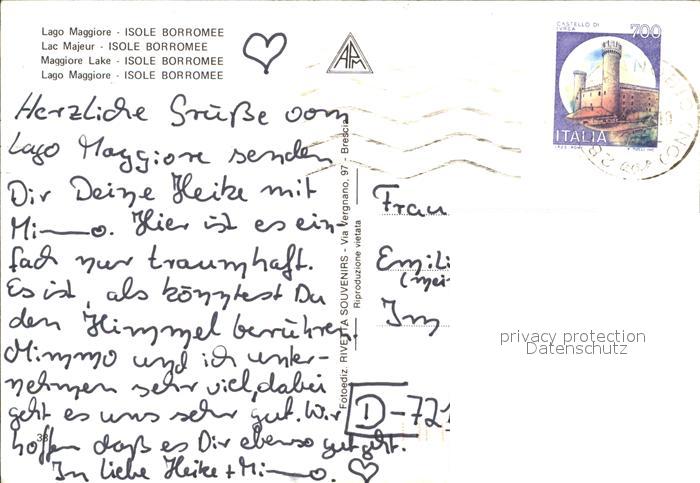 Lago Maggiore - ISOLE BORROMEE
Lac Majeur - ISOLE BORROMEE
Maggiore Lake - ISOLE BORROMEE
Lago Maggiore - ISOLE BORROMEE
APM
CASTELLO DI
IVREA
700
ITALIA
Herzliche Grüße vom
Lago Maggiore senden
Dir Deine Heike mit
Mi——o. Hier ist es ein-
fach nur traumhaft.
Es ist, als könntest Du
den Himmel berühren.
Mimmo und ich unter-
nehmen sehr viel, dabei
geht es uns sehr gut. Wir
hoffen daß es Dir ebenso gut geht.
In Liebe Heike + Mi——o.
38
Fotoediz. RIVETTA SOUVENIRS - Via Vergnano, 97 - Brescia
Riproduzione vietata
Frau
Emili
(mei
Im
D-721
privacy protection
Datenschutz